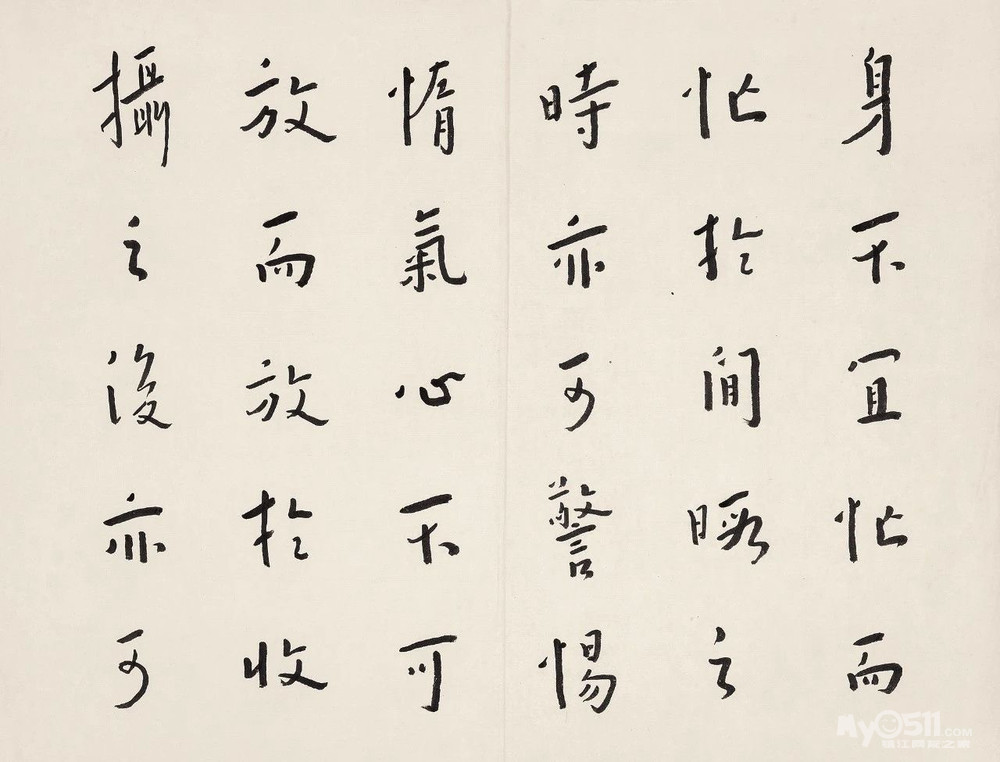 身不宜忙而
忙於閒暇之
時亦可警惕
惰氣心不可
放而放於收
攝之後亦可
My0511.COM